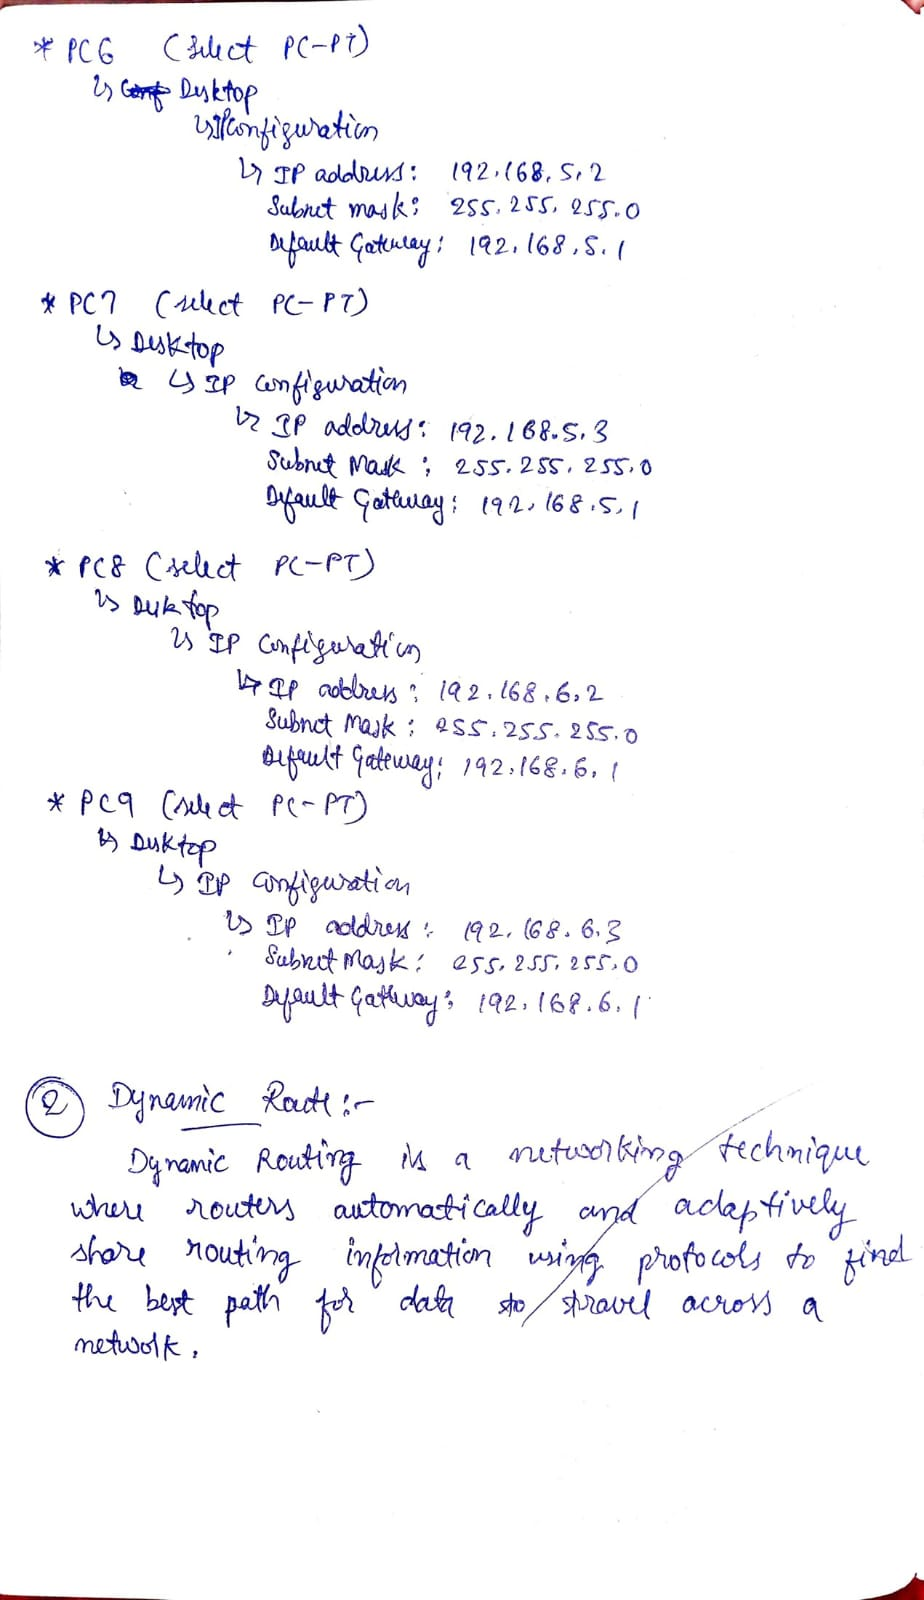 * PC6 (select PC-PT)
↳ Conf Desktop
↳ IPconfiguration
↳ IP address: 192.168.5.2
Subnet mask: 255.255.255.0
Default Gateway: 192.168.5.1
* PC7 (select PC-PT)
↳ Desktop
↳ IP configuration
↳ IP address: 192.168.5.3
Subnet Mask: 255.255.255.0
Default Gateway: 192.168.5.1
* PC8 (select PC-PT)
↳ Desktop
↳ IP Configuration
↳ IP address: 192.168.6.2
Subnet Mask: 255.255.255.0
Default Gateway: 192.168.6.1
* PC9 (select PC-PT)
↳ Desktop
↳ IP configuration
↳ IP address: 192.168.6.3
Subnet Mask: 255.255.255.0
Default Gateway: 192.168.6.1
② Dynamic Route:-
Dynamic Routing is a networking technique
where routers automatically and adaptively
share routing information using protocols to find
the best path for data to travel across a
network.